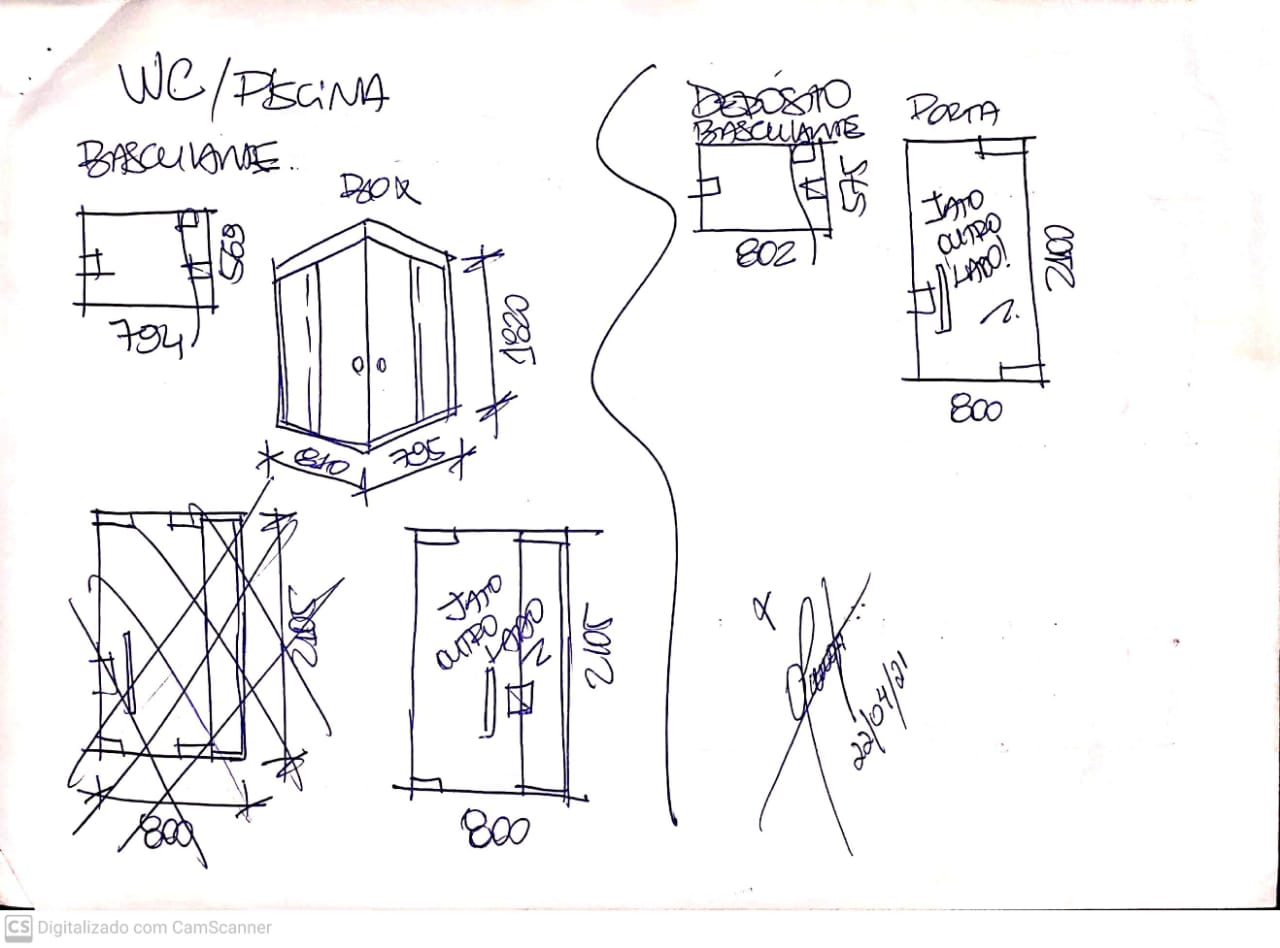 WC/PISCINA
BASCULANTE.
569
794
BOX
1820
810
795
2105
800
JATO
OUTRO
LADO
2105
800
DEPÓSITO
BASCULANTE
575
802
PORTA
JATO
OUTRO
LADO!
2100
800
22/04/21
CS Digitalizado com CamScanner